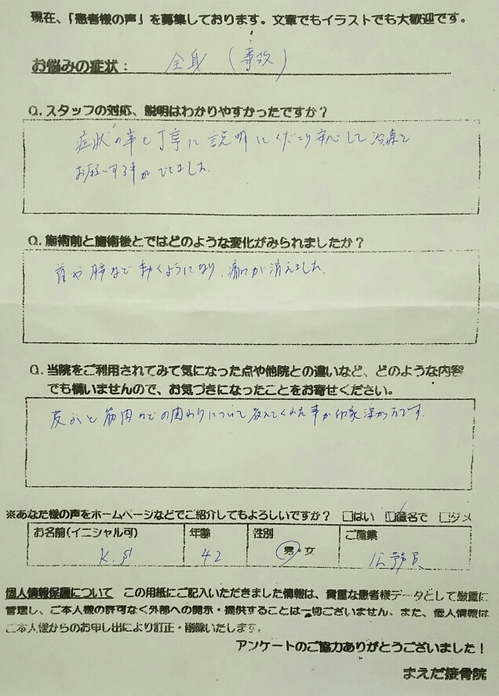 現在、「患者様の声」を募集しております。文章でもイラストでも大歓迎です。
お悩みの症状: 全身 (事故)
Q. スタッフの対応、説明はわかりやすかったですか?
症状の事も丁寧に説明してくださり安心して治療を
お願いする事ができました。
Q. 施術前と施術後とではどのような変化がみられましたか?
首や腕など動くようになり、痛みが消えました。
Q. 当院をご利用されてみて気になった点や他院との違いなど、どのような内容
でも構いませんので、お気づきになったことをお寄せください。
筋肉などの関わりについて教えてくれた事が印象深かったです。
※あなた様の声をホームページなどでご紹介してもよろしいですか? □はい ☑匿名で □ダメ
お名前(イニシャル可) 年齢 性別 ご職業
K.S 42 男・女 公務員
個人情報保護について この用紙にご記入いただきました情報は、貴重な患者様データとして厳重に
管理し、ご本人様の許可なく外部への開示・提供することは一切ございません。また、個人情報は
ご本人様からのお申し出により訂正・削除いたします。
アンケートのご協力ありがとうございました!
まえだ接骨院